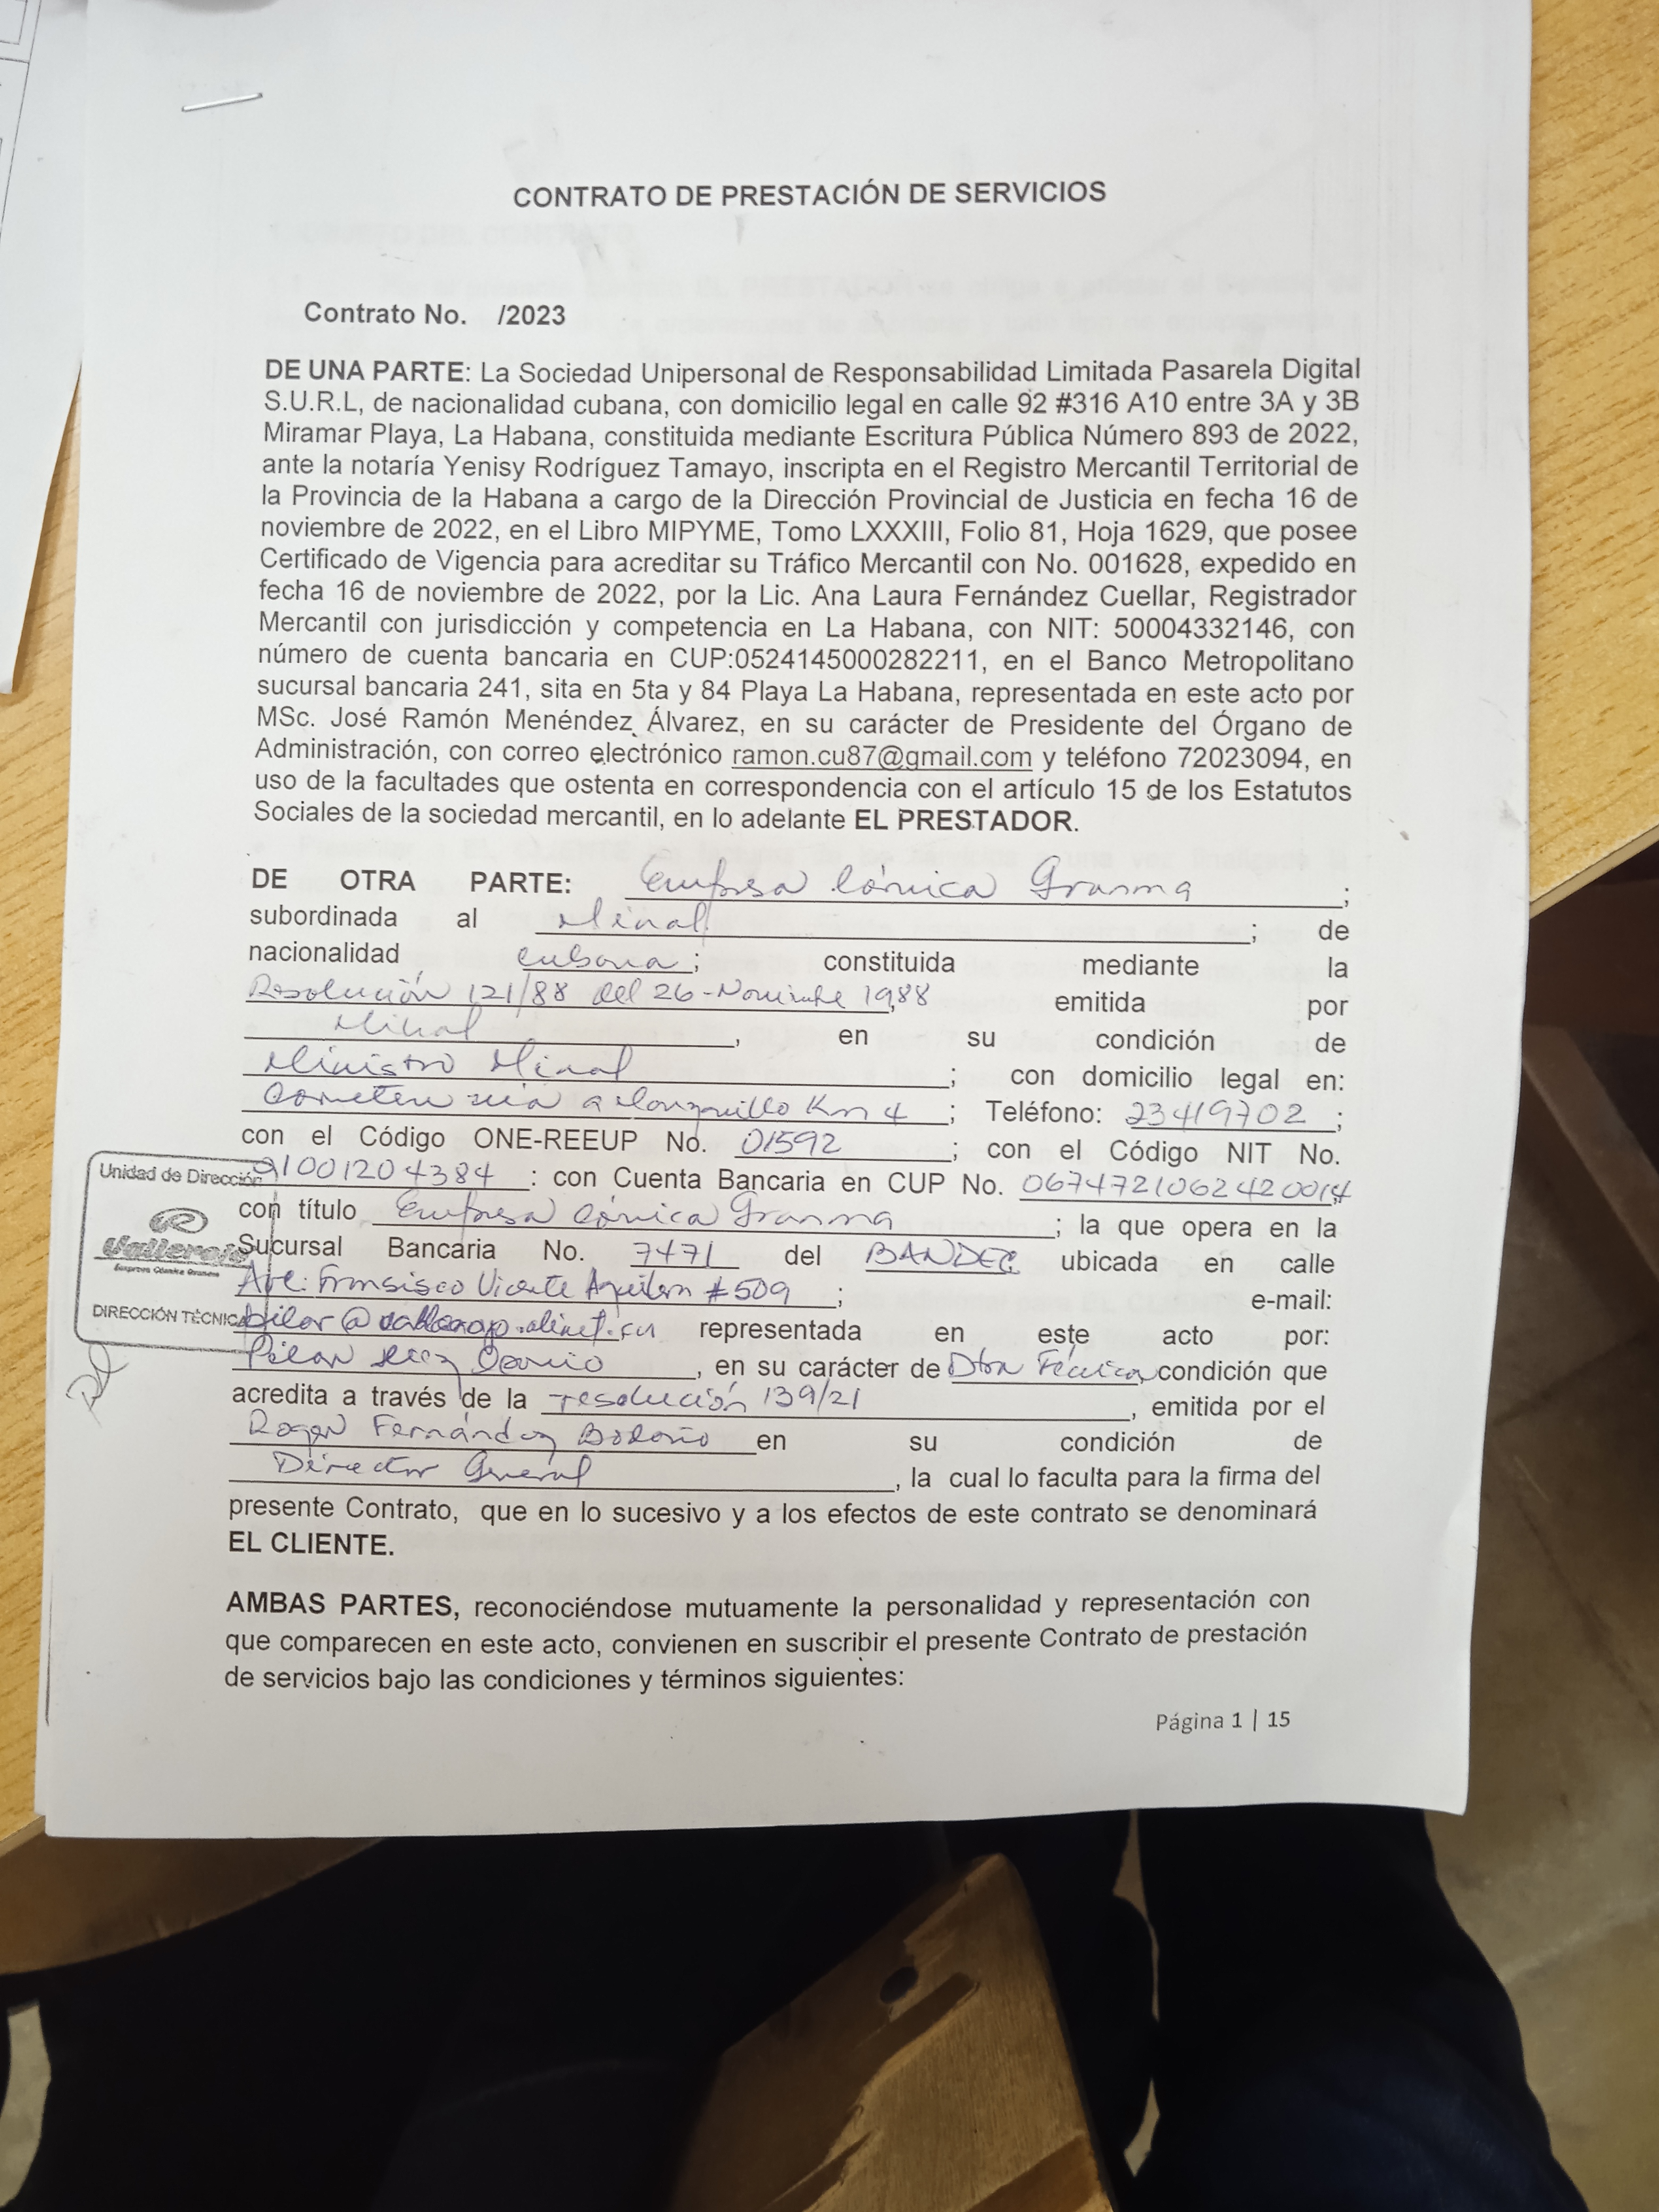 CONTRATO DE PRESTACIÓN DE SERVICIOS
Contrato No. /2023
DE UNA PARTE: La Sociedad Unipersonal de Responsabilidad Limitada Pasarela Digital
S.U.R.L, de nacionalidad cubana, con domicilio legal en calle 92 #316 A10 entre 3A y 3B
Miramar Playa, La Habana, constituida mediante Escritura Pública Número 893 de 2022,
ante la notaría Yenisy Rodríguez Tamayo, inscripta en el Registro Mercantil Territorial de
la Provincia de la Habana a cargo de la Dirección Provincial de Justicia en fecha 16 de
noviembre de 2022, en el Libro MIPYME, Tomo LXXXIII, Folio 81, Hoja 1629, que posee
Certificado de Vigencia para acreditar su Tráfico Mercantil con No. 001628, expedido en
fecha 16 de noviembre de 2022, por la Lic. Ana Laura Fernández Cuellar, Registrador
Mercantil con jurisdicción y competencia en La Habana, con NIT: 50004332146, con
número de cuenta bancaria en CUP:0524145000282211, en el Banco Metropolitano
sucursal bancaria 241, sita en 5ta y 84 Playa La Habana, representada en este acto por
MSc. José Ramón Menéndez Álvarez, en su carácter de Presidente del Órgano de
Administración, con correo electrónico ramon.cu87@gmail.com y teléfono 72023094, en
uso de la facultades que ostenta en correspondencia con el artículo 15 de los Estatutos
Sociales de la sociedad mercantil, en lo adelante EL PRESTADOR.
DE OTRA PARTE: Empresa Cárnica Granma ;
subordinada al Minal ; de
nacionalidad cubana ; constituida mediante la
Resolución 121/88 del 26-Noviembre 1988, emitida por
Minal , en su condición de
Ministro Minal ; con domicilio legal en:
Carretera vía a Manzanillo Km 4 ; Teléfono: 23419702 ;
con el Código ONE-REEUP No. 01592 ; con el Código NIT No.
Unidad de Dirección
01001204384 : con Cuenta Bancaria en CUP No. 0674721062420014
con título Empresa Cárnica Granma ; la que opera en la
Empresa Cárnica Granma
Sucursal Bancaria No. 7471 del BANDEC ubicada en calle
Ave: Fransisco Vicente Aguilera #509 ; e-mail:
DIRECCIÓN TÉCNICA
representada en este acto por:
Pilar , en su carácter de Dtra Técnica, condición que
acredita a través de la resolución 139/21 , emitida por el
Roger Fernández en su condición de
Director General , la cual lo faculta para la firma del
presente Contrato, que en lo sucesivo y a los efectos de este contrato se denominará
EL CLIENTE.
AMBAS PARTES, reconociéndose mutuamente la personalidad y representación con
que comparecen en este acto, convienen en suscribir el presente Contrato de prestación
de servicios bajo las condiciones y términos siguientes:
Página 1 | 15